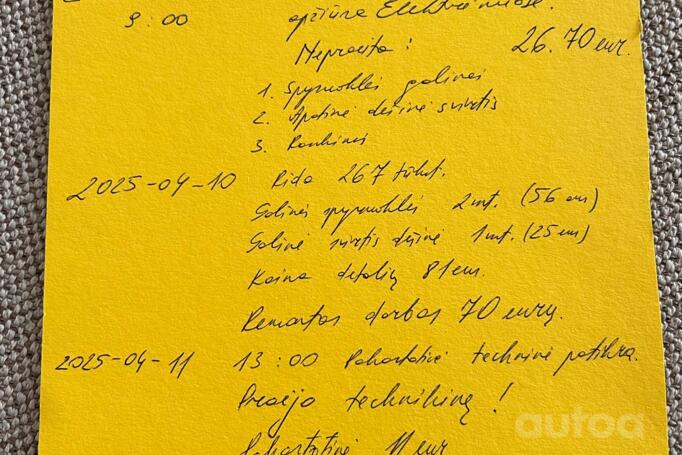 9:00 apžiūra Elektrėnuose.
Nepraeita! 26.70 eur.
1. Spyruoklės galinės
2. Apatinė dešinė svirtis
3. Rankinis
2025-04-10 Rida 267 tūkst.
Galinės spyruoklės 2vnt. (56 eur)
Galinė svirtis dešinė 1vnt. (25 eur)
Kaina detalių 81 eur.
Remontas darbas 70 eurų.
2025-04-11 13:00 Pakartotinė techninė patikra.
Praėjo techniniką!
Pakartotinė 11 eur
autoa